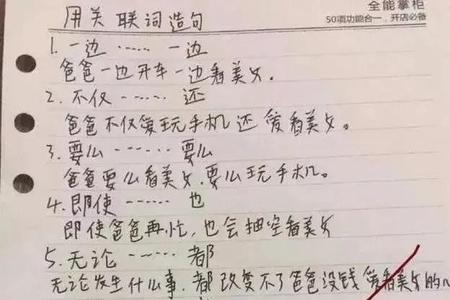 全能掌柜
50项功能合一,开店必备
用关联词造句
1. 一边 …… 一边
爸爸一边开车一边看美女。
2. 不仅 …… 还
爸爸不仅爱玩手机还爱看美女。
3. 要么 …… 要么
爸爸要么看美女,要么玩手机。
4. 即使 …… 也
即使爸爸再忙,也会抽空看美女
5. 无论 …… 都
无论发生什么事,都改变不了爸爸没钱爱看美女的